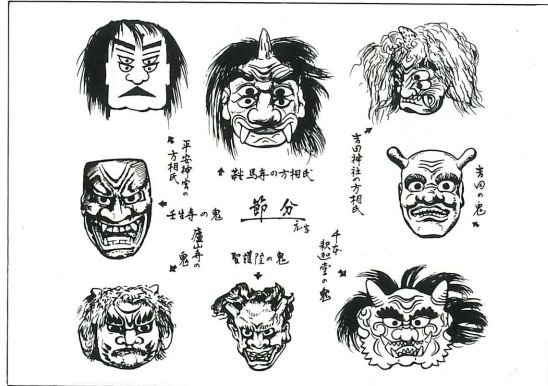 平安神宮の
方相氏
鞍馬寺の方相氏
吉田神社の方相氏
壬生寺の鬼
節分
吉田の鬼
廬山寺の
鬼
聖護院の鬼
千本
釈迦堂の鬼